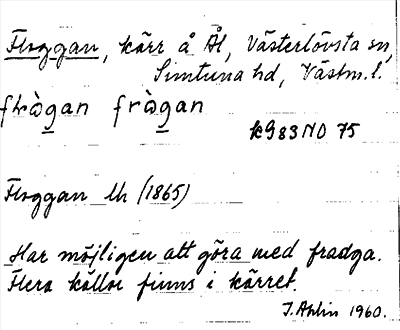 Floggan, kärr å Ål, Västerlövsta sn,
Simtuna hd, Västm. l.
fràgan fràgan
k983 NO 75
Floggan Lk (1865)
Har möjligen att göra med fradga.
Flera källor finns i kärret.
J. Ahlin 1960.